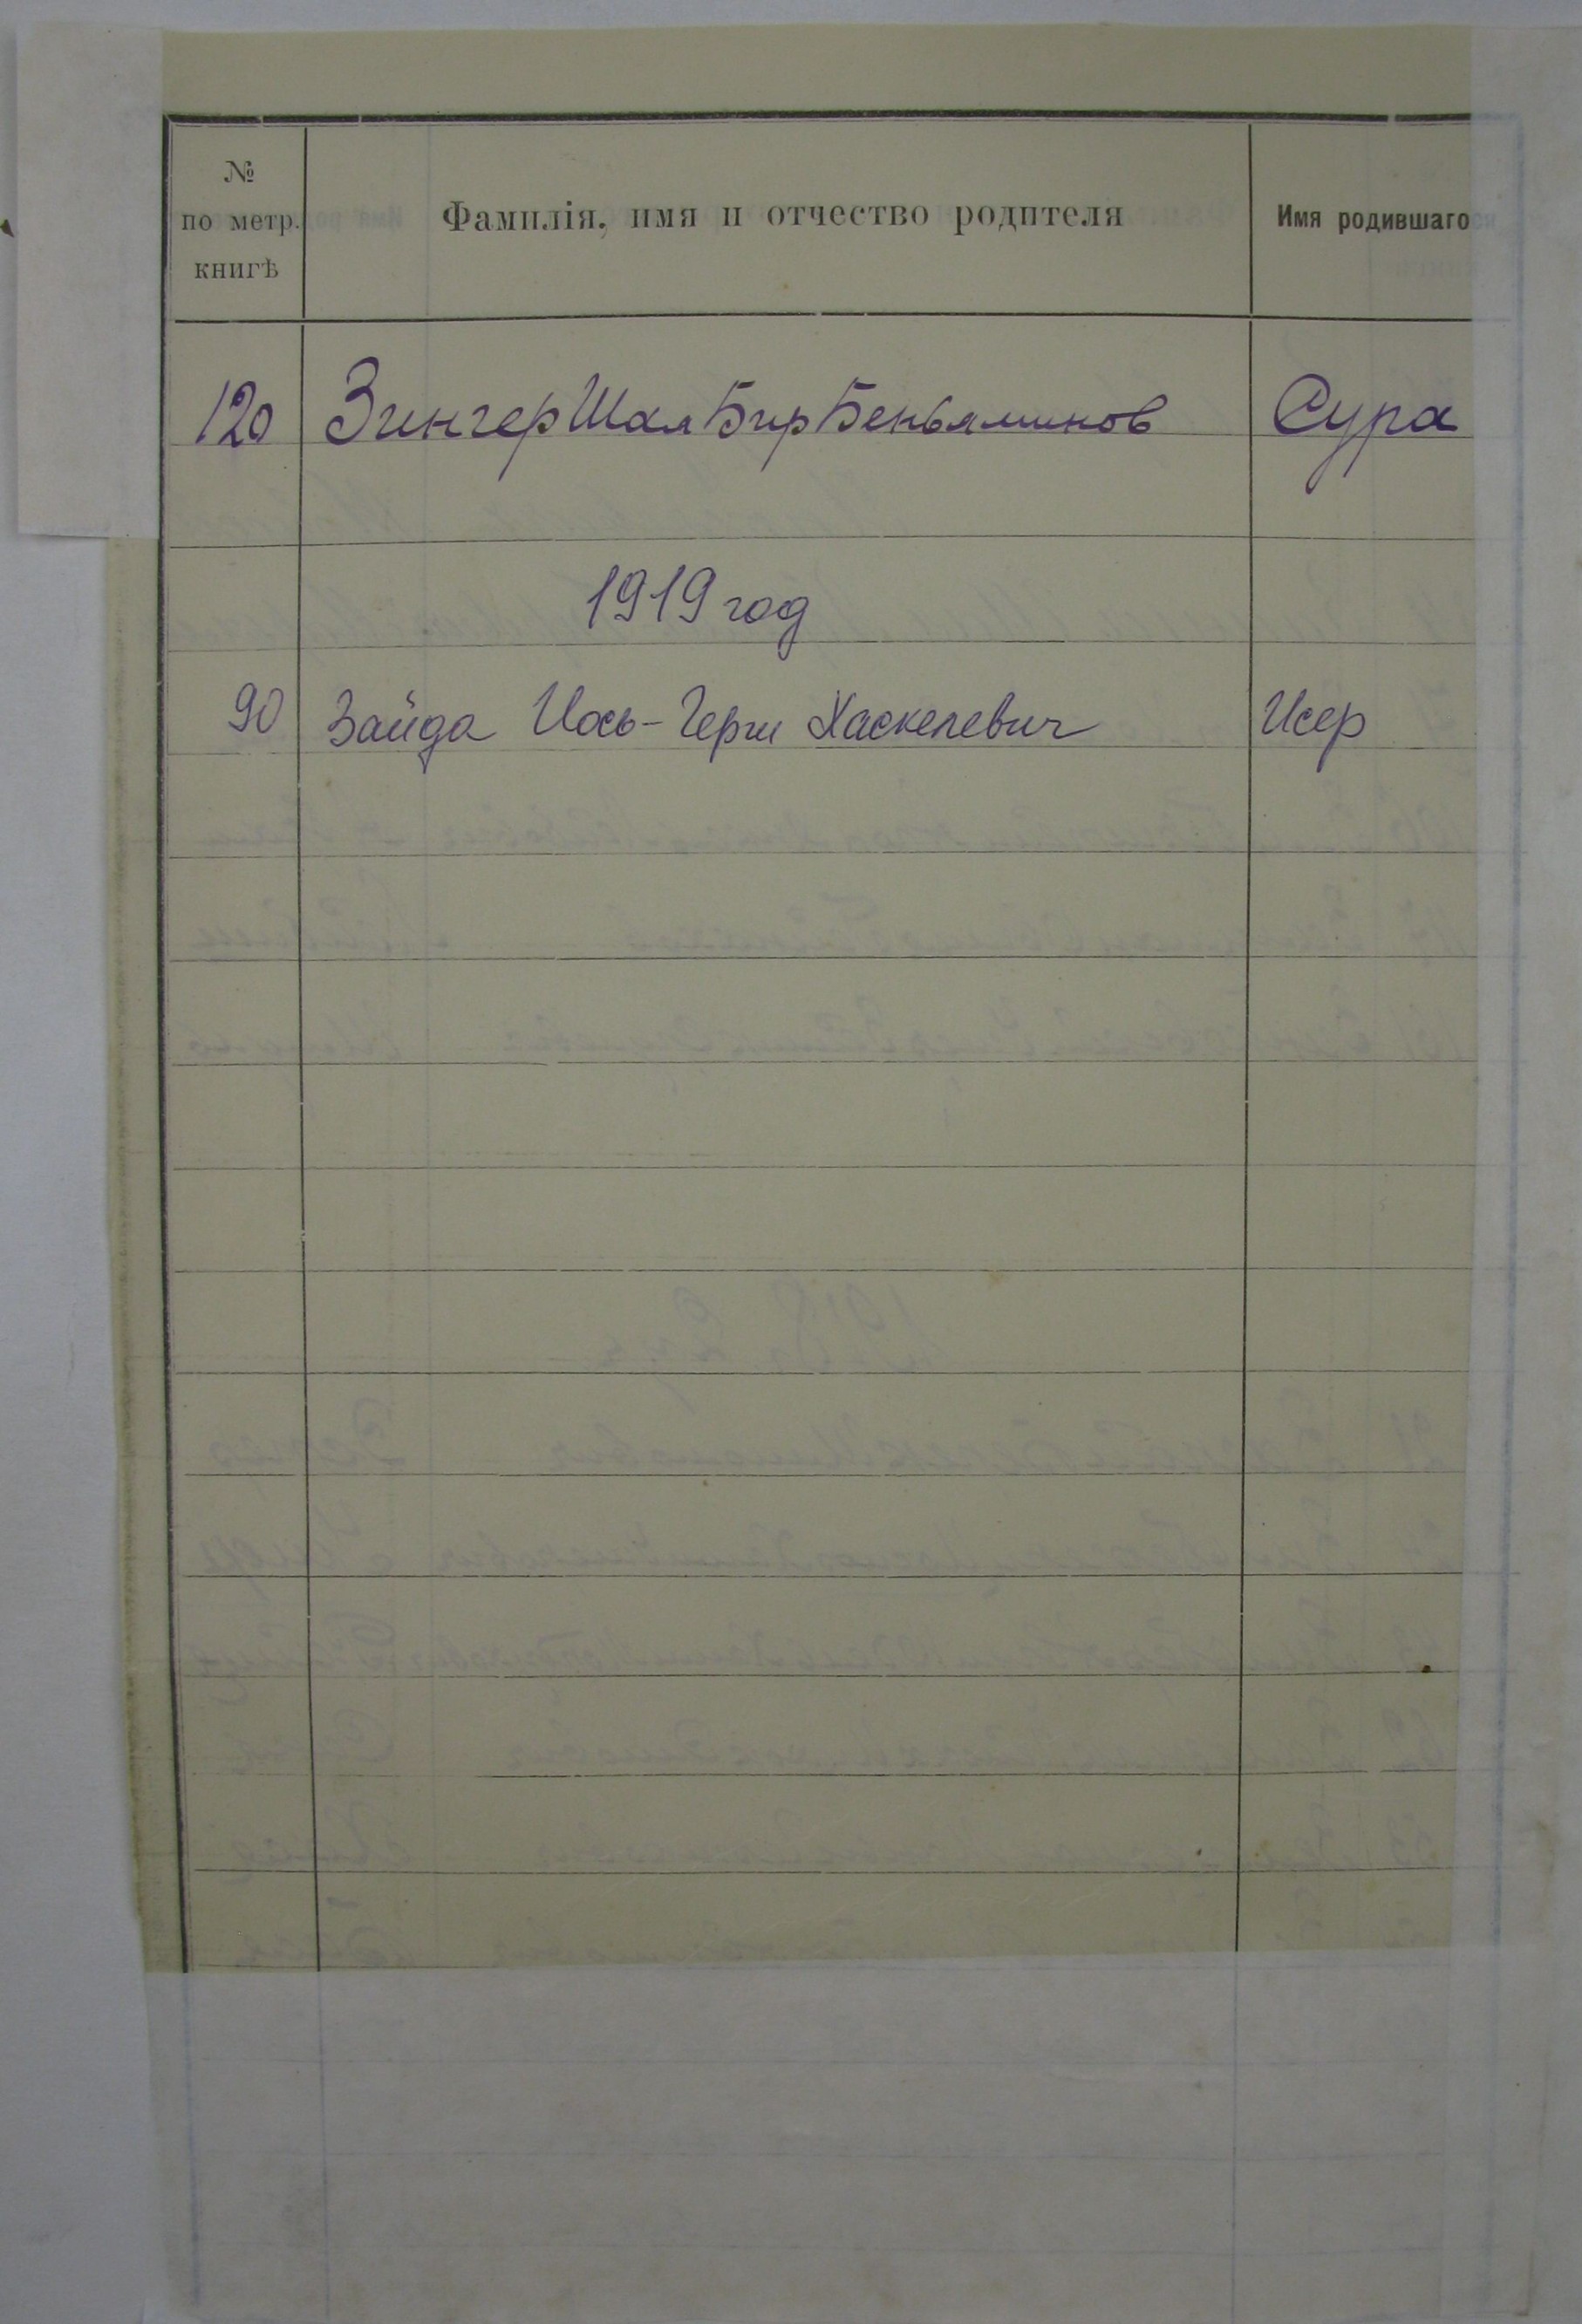 №
по метр.
книгѣ
Фамилія, имя и отчество родителя
Имя родившагося
120 Зингер Шая Бер Беньяминов Сура
1919 год
90 Зайда Иось-Герш Хаскелевич Исер